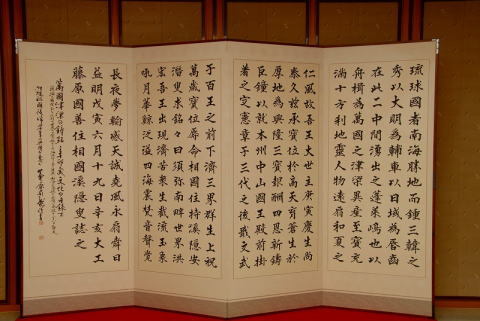 琉球國者南海勝地而鍾三韓之
秀以大明為輔車以日域為唇齒
在此二中間湧出之蓬莱嶋也以
舟楫為萬國之津梁異産至寶充
満十方刹地靈人物遠扇和夏之
仁風故吾王大世主庚寅慶生尚
泰久茲承寶位於高天育蒼生於
厚地為興隆三寶報酬四恩新鋳
臣鐘以就本州中山國王殿前掛
著之定憲章于三代之後戢文武
于百王之前下濟三界群生上祝
萬歳寶位辱命相國住持溪隠安
潜叟求銘々曰須弥南畔世界洪
宏吾王出現濟苦衆生截流玉象
吼月華鯨泛溢四海震梵音聲覺
長夜夢輸感天誠堯風永扇舜日
益明戊寅六月十九日辛亥大工
藤原國善住相國溪隠叟誌之
萬國津梁の鐘銘